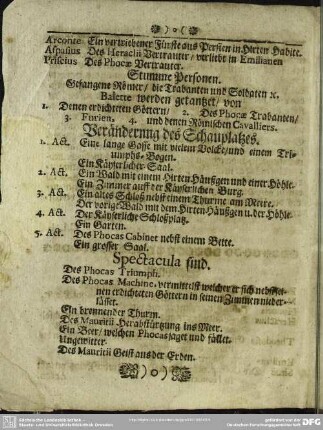 )o(
Arconte Ein vertriebener Fürste aus Persien in Hirten Habite.
Aspasius Des Heraclii Vertrauter / verliebt in Emilianen
Priscius Des Phocæ Vertrauter.
Stumme Personen.
Gefangene Römer / die Trabanten und Soldaten ꝛc.
Balette werden getantzet / von
1. Denen erdichteten Göttern / 2. Des Phocæ Trabanten /
3. Furien. 4. und denen Römischen Cavalliers.
Veränderung des Schauplatzes.
1. Act. Eine lange Gasse mit vielem Volcke / und einem Tri-
umphs-Bogen.
Ein Käyserlicher Saal.
2. Act. Ein Wald mit einem Hirten Häußgen und einer Höhle.
Ein Zimmer auff der Käyserlichen Burg.
3. Act. Ein altes Schloß nebst einem Thurme am Meere.
Der vorige Wald mit dem Hirten Häußgen u. der Höhle.
4. Act. Der Käyserliche Schloßplatz.
Ein Garten.
5. Act. Des Phocas Cabinet nebst einem Bette.
Ein grosser Saal.
Spectacula sind.
Des Phocas Triumph.
Des Phocas Machine, vermittelst welcher er sich nebst sei-
nen erdichteten Göttern in seinen Zimmern nieder-
lässet.
Ein brennender Thurm.
Des Mauritii Herabstürtzung ins Meer.
Ein Beer / welchen Phocas jaget und fället.
Ungewitter.
Des Mauritii Geist aus der Erden.
)o(